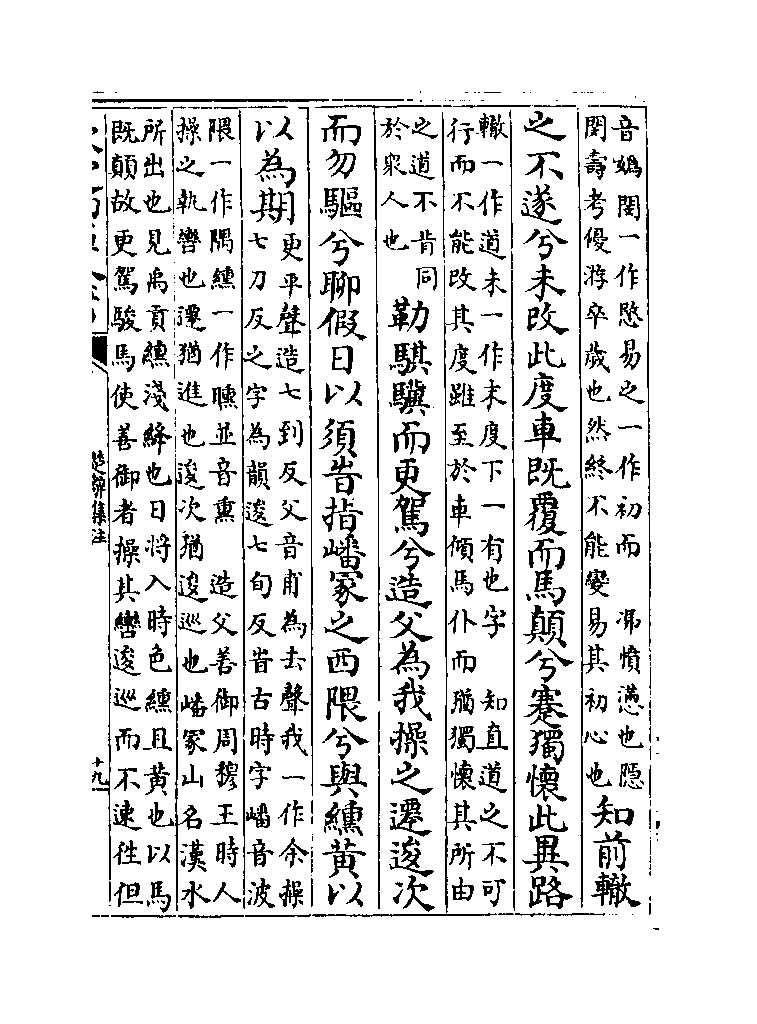 音媯閔一作愍易之一作初而　馮憤懣也隱
閔壽考優游卒歲也然終不能變易其初心也
知前轍
之不遂兮未改此度車既覆而馬顛兮蹇獨懷此異路
轍一作道未一作末度下一有也字　知直道之不可
行而不能改其度雖至於車傾馬仆而猶獨懷其所由
之道不肯同
於衆人也
勒騏驥而更駕兮造父為我操之遷逡次
而勿驅兮聊假日以須旹指嶓冢之西隈兮與纁黃以
以為期
更平聲造七到反父音甫為去聲我一作余操
七刀反之字為韻逡七旬反旹古時字嶓音波
隈一作隅纁一作曛並音熏　造父善御周穆王時人
操之執轡也遷猶進也逡次猶逡巡也嶓冢山名漢水
所出也見禹貢纁淺絳也日將入時色纁且黃也以馬
既顛故更駕駿馬使善御者操其轡逡巡而不速往但
楚辭集注
十九